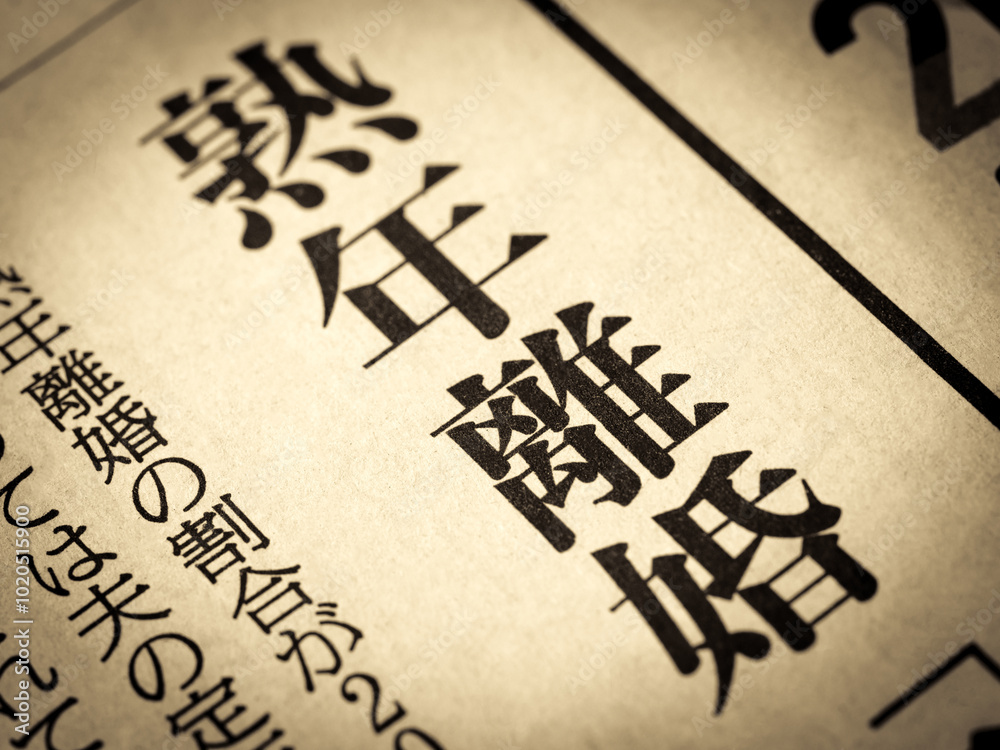 2
熟年離婚
熟年離婚の割合が2
ては夫の定
Adobe Stock | #1020515900